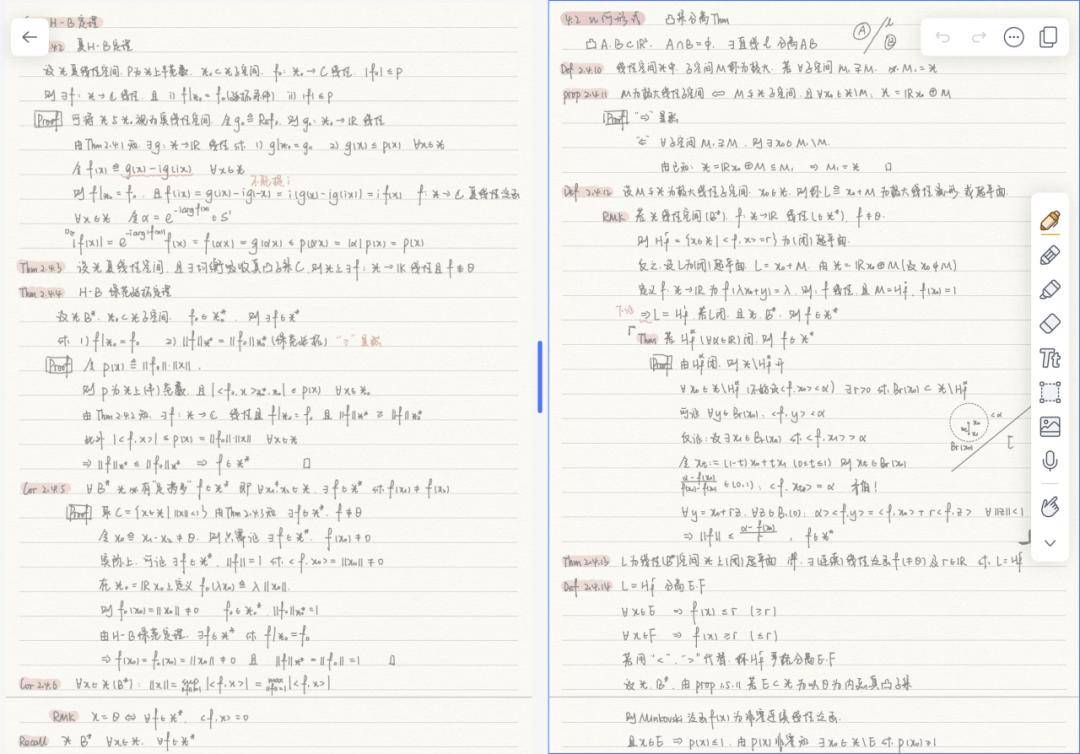 H-B定理
4.2 复H-B定理
设 𝒳 复线性空间, P为𝒳上半范数, 𝒳₀⊂𝒳 子空间. f₀: 𝒳₀→ℂ 线性, |f₀|≤p
则 ∃f: 𝒳→ℂ 线性, 且 i) f|𝒳₀=f₀ (延拓条件) ii) |f|≤p
Proof 可将 𝒳与𝒳₀视为实线性空间. 令 g₀≜Ref₀, 则 g₀: 𝒳₀→ℝ 线性
由Thm 2.4.1知 ∃g: 𝒳→ℝ 线性 st. 1) g|𝒳₀=g₀ 2) g(x)≤p(x) ∀x∈𝒳
令 f(x)≜g(x)-ig(ix) ∀x∈𝒳
不能提i
则 f|𝒳₀=f₀, 且 f(ix)=g(ix)-ig(-x)=i(g(x)-ig(ix))=if(x) f: 𝒳→ℂ 复线性泛函
∀x∈𝒳 令α=e^{-iargf(x)}∈S¹
|f(x)|=e^{-iargf(x)}f(x)=f(αx)=g(αx)≤p(αx)=|α|p(x)=p(x)
Thm 2.4.3 设 𝒳 复线性空间, 且∃均衡吸收真凸子集C, 则𝒳上∃f: 𝒳→𝕂 线性且f≠θ
Thm 2.4.4 H-B 保范延拓定理
设 𝒳 B*. 𝒳₀⊂𝒳 子空间. f₀∈𝒳₀*. 则 ∃f∈𝒳*
st. 1) f|𝒳₀=f₀ 2) ||f||𝒳*=||f₀||𝒳₀* (保范延拓) "≥"显然
Proof 令 p(x)≜||f₀||·||x||.
则 p为𝒳上(半)范数, 且 |<f₀,x>𝒳₀*,𝒳₀|≤p(x) ∀x∈𝒳₀
由Thm 2.4.2知 ∃f: 𝒳→ℂ 线性且 f|𝒳₀=f₀ 且 ||f||𝒳*≥||f₀||𝒳₀*
此外 |<f,x>|≤p(x)=||f₀||·||x|| ∀x∈𝒳
⇒ ||f||𝒳*≤||f₀||𝒳₀* ⇒ f∈𝒳* □
Cor 2.4.5 ∀B* 𝒳必有"足够多" f∈𝒳* 即 ∀x₁,x₂∈𝒳, ∃f∈𝒳* st. f(x₁)≠f(x₂)
Proof 取C={x∈𝒳 | ||x||<1} 由Thm 2.4.3知 ∃f∈𝒳*. f≠θ
令 x₀≜x₁-x₂≠θ. 则只需证 ∃f∈𝒳*. f(x₀)≠0
实际上, 可证 ∃f∈𝒳*. ||f||=1 st. <f,x₀>=||x₀||≠0
在𝒳₀=ℝx₀上定义 f₀(λx₀)≜λ||x₀||.
则 f₀(x₀)=||x₀||≠0 f₀∈𝒳₀*. ||f₀||𝒳₀*=1
由H-B保范定理. ∃f∈𝒳* st. f|𝒳₀=f₀
⇒ f(x₀)=f₀(x₀)=||x₀||≠0 且 ||f||𝒳*=||f₀||=1 □
Cor 2.4.6 ∀x∈𝒳(B*): ||x||=sup|<f,x>|=max|<f,x>|
RMK x=θ ⇔ ∀f∈𝒳*. <f,x>=0
Recall 𝒳 B* ∀x∈𝒳. ∀f∈𝒳*
4.2 几何形式 凸集分离Thm
凸A.B⊂ℝ². A∩B=∅. ∃直线ℓ 分离AB
A ℓ B
Def 2.4.10 线性空间𝒳中, 子空间M称为极大, 若∀子空间M₁⊋M. 必M₁=𝒳
prop 2.4.11 M为极大线性子空间 ⇔ M⊊𝒳子空间, 且∀x₀∈𝒳\M, 𝒳=ℝx₀⊕M
Proof "⇒" 显然
"⇐" ∀子空间M₁⊋M, 则∃x₀∈M₁\M.
由已知: 𝒳=ℝx₀⊕M≤M₁ ⇒ M₁=𝒳 □
Def 2.4.12 设M⊊𝒳为极大线性子空间. x₀∈𝒳. 则称L≜x₀+M为极大线性流形 或超平面
RMK 若𝒳线性空间(B*), f: 𝒳→ℝ 线性(∈𝒳*). f≠θ.
则 H_f^r={x∈𝒳|<f,x>=r}为(闭)超平面.
反之, 设L为(闭)超平面 L=x₀+M. 由𝒳=ℝx₀⊕M (设x₀∉M)
定义f: 𝒳→ℝ 为 f(λx₀+y)=λ, 则: f线性, 且M=H_f⁰. f(x₀)=1
⇒L=H_f¹. 若L闭, 且𝒳 B*. 则f∈𝒳*
Thm 若H_f^α(∀α∈ℝ)闭, 则f∈𝒳*
Proof 由H_f^α闭. 则𝒳\H_f^α开
∀x₀∈𝒳\H_f^α (不妨设<f,x₀><α) ∃r>0 st. Br(x₀)⊂𝒳\H_f^α
可证 ∀y∈Br(x₀), <f,y><α
反证: 设∃x₁∈Br(x₀) st. <f,x₁>>α
令 x_t:=(1-t)x₀+tx₁ (0≤t≤1) 则x_t∈Br(x₀)
(α-f(x₀))/(f(x₁)-f(x₀))∈(0,1), <f,x_{t₀}>=α 矛盾!
∀y=x₀+rz. ∀z∈B₁(0), α><f,y>=<f,x₀>+r<f,z> ∀||z||<1
⇒ ||f||≤(α-f(x₀))/r, f∈𝒳*
x₀ x₁ <α
Br(x₀) L
Thm 2.4.13 L为线性(B*)空间𝒳上(闭)超平面 iff. ∃(连续)线性泛函f(≠θ)&r∈ℝ st. L=H_f^r
Def 2.4.14 L=H_f^r 分离E.F
∀x∈E ⇒ f(x)≤r (≥r)
∀x∈F ⇒ f(x)≥r (≤r)
若用"<". ">"代替. 称H_f^r严格分离E.F
设𝒳. B*. 由prop 1.5.11 若E⊂𝒳为以θ为内点真凸子集
则Minkovski泛函p(x)为非零连续线性泛函.
且x∈E ⇒ p(x)≤1. 由p(x)非零知 ∃x₀∈𝒳\E st. p(x₀)≥1